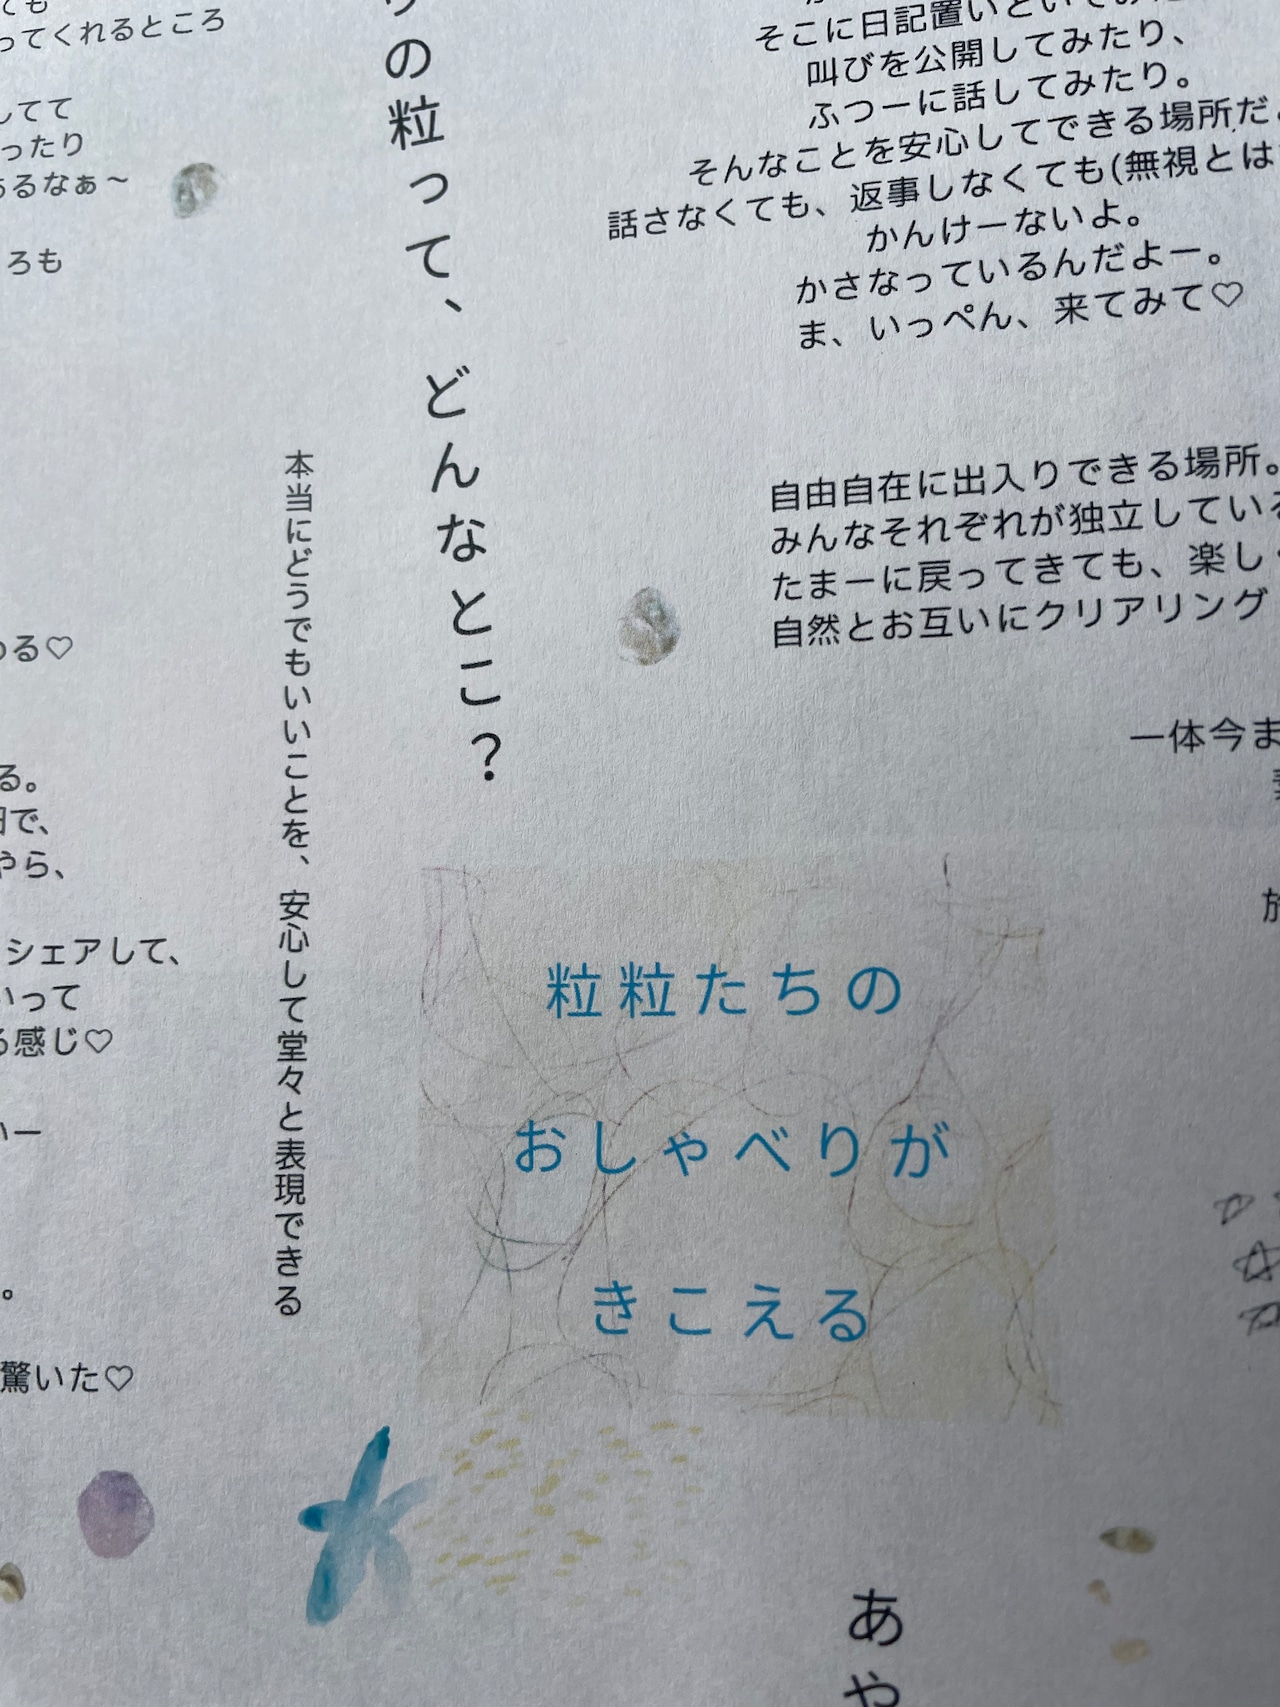 ても
ってくれるところ
してて
ったり
あるなぁ～
ろも
わる♡
る。
で、
やら、
シェアして、
いって
る感じ♡
いー
。
驚いた♡
本当にどうでもいいことを、安心して堂々と表現できる
の粒って、どんなとこ？
そこに日記置いといてみた
叫びを公開してみたり、
ふつーに話してみたり。
そんなことを安心してできる場所だ
話さなくても、返事しなくても(無視とは
かんけーないよ。
かさなっているんだよー。
ま、いっぺん、来てみて♡
自由自在に出入りできる場所。
みんなそれぞれが独立している
たまーに戻ってきても、楽し
自然とお互いにクリアリング
一体今ま
粒粒たちの
おしゃべりが
きこえる
あや